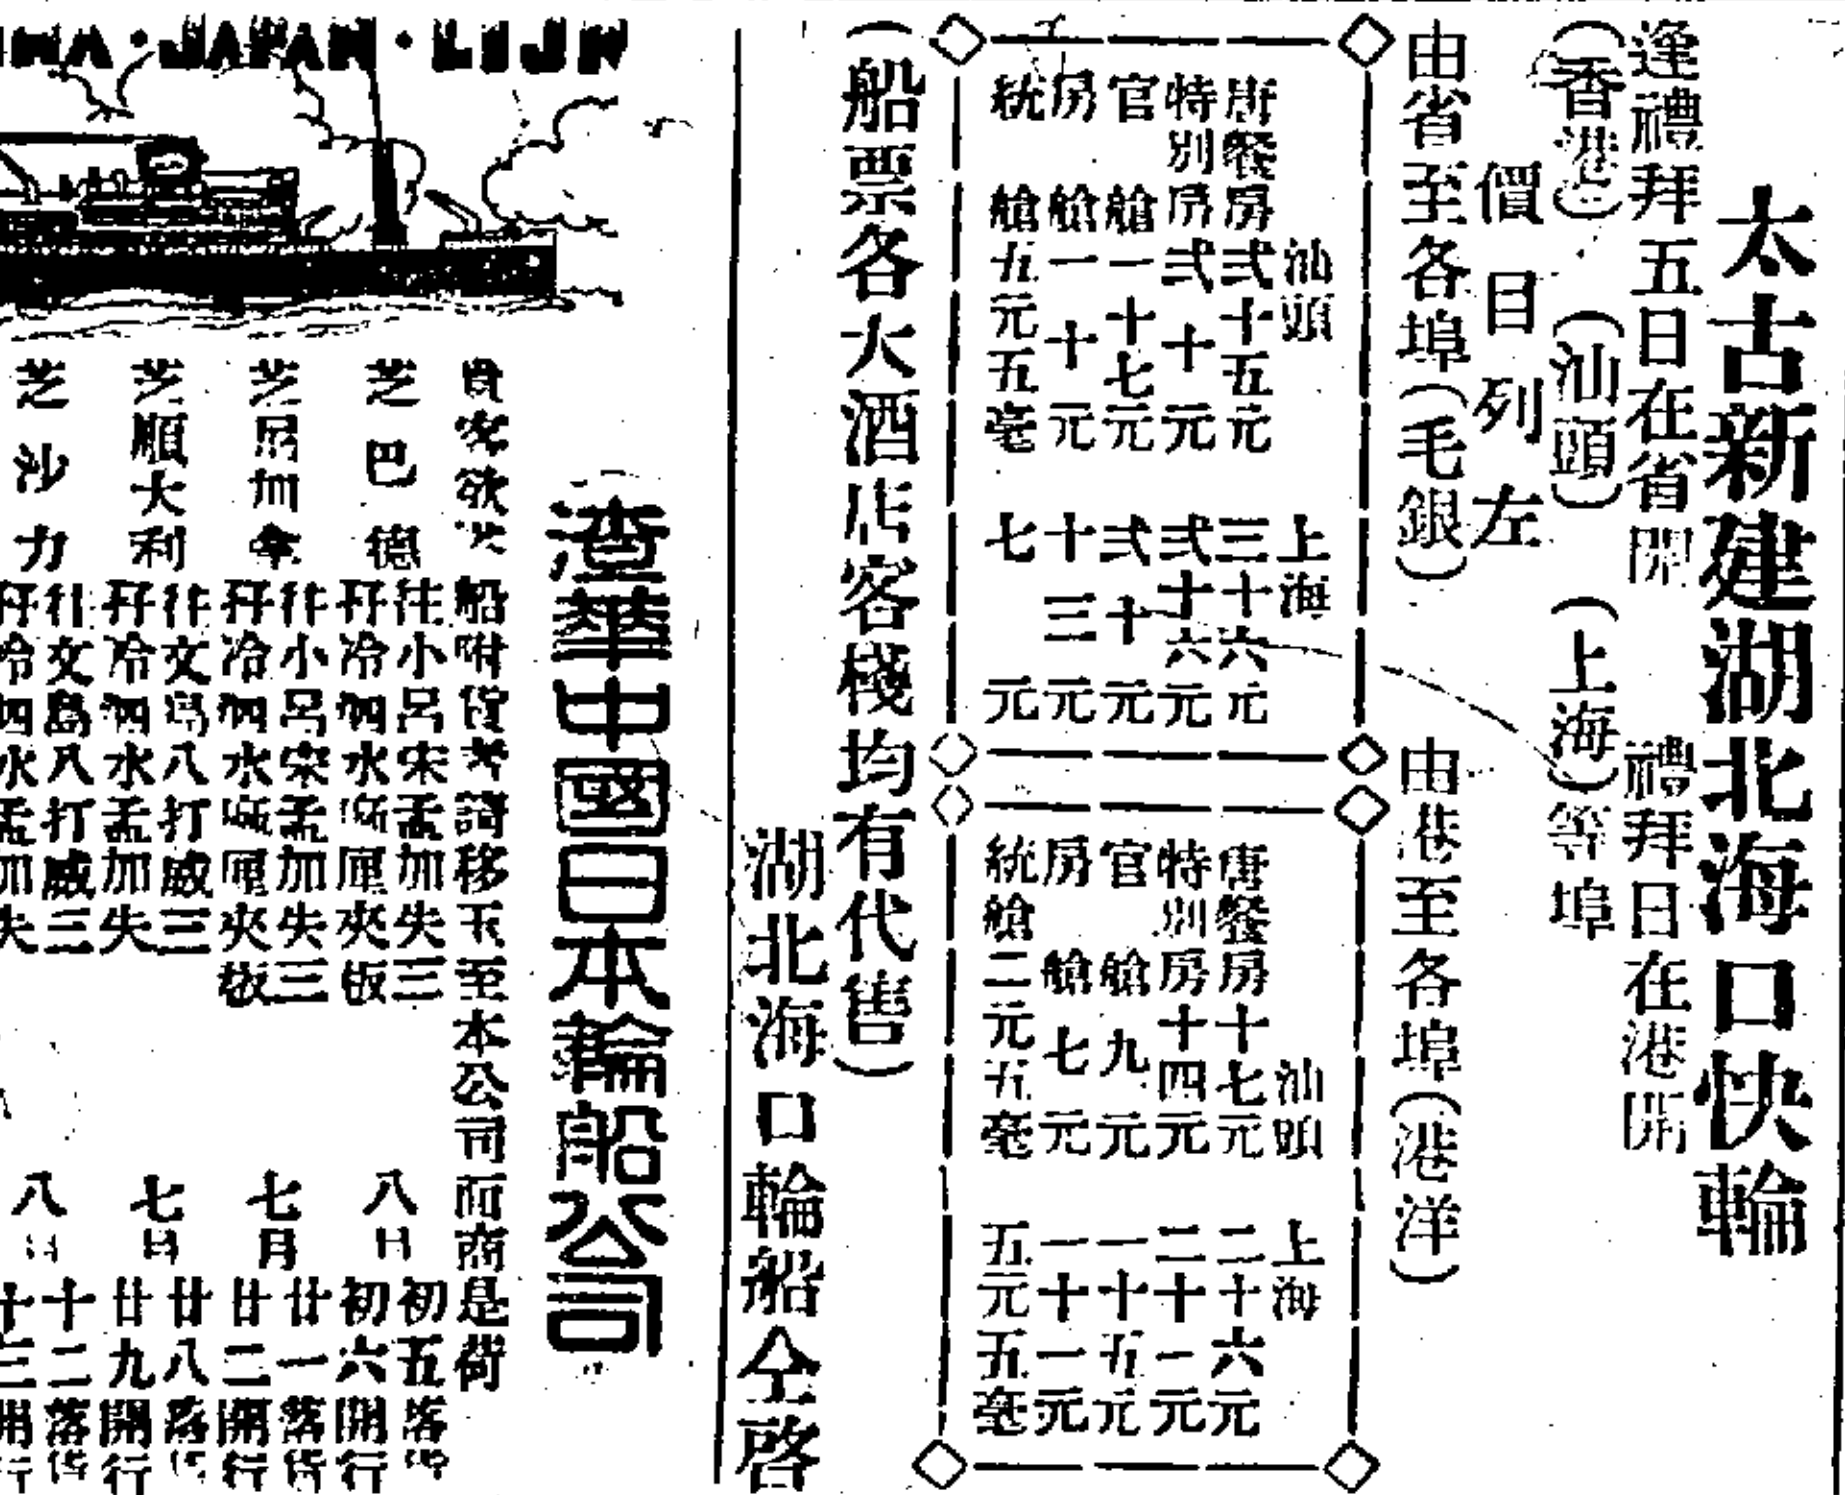 太古新建湖北海口快輪
逢禮拜五日在省開 禮拜日在港開
(香港) (汕頭) (上海)等埠
價目列左
由省至各埠(毛銀)
汕頭 上海
唐餐房弍十五元 三十六元
特別房弍十元 弍十六元
官艙一十七元 弍十元
房艙一十元 十三元
統艙五元五毫 七元
由港至各埠(港洋)
汕頭 上海
唐餐房十七元 二十六元
特別房十四元 二十一元
官艙九元 一十五元
房艙七元 一十一元
統艙二元五毫 五元五毫
(船票各大酒店客棧均有代售)
湖北海口輪船仝啓
JAPAN·LIJN
渣華中國日本輪船公司
貴客欲 船附貨者請移玉至本公司面商是荷
芝巴德
往小呂宋孟加失三
孖冷泗水 厘夾板
八月
初五落貨
初六開行
芝尼加拿
往小呂宋孟加失三
孖冷泗水 厘夾板
七月
廿一落貨
廿二開行
芝順大利
往文島八打威三
孖冷泗水孟加失
七月
廿八落
廿九開行
芝沙力
往文島八打威三
孖冷泗水孟加失
八月
十二落貨
十三開行